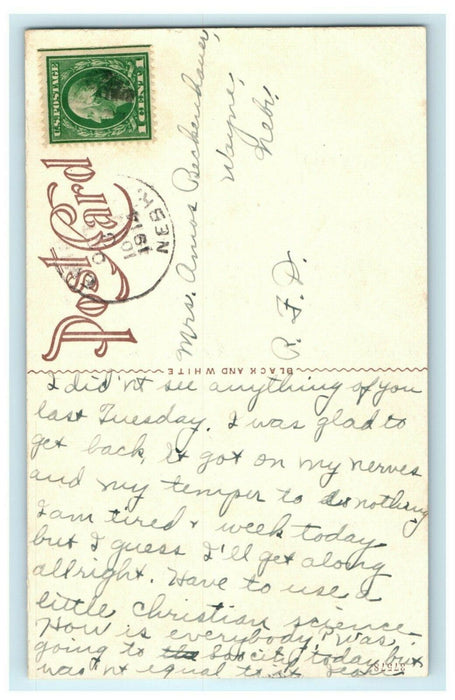 U.S. POSTAGE
1 CENT 1
Post Card
NEBR.
10
1914
Mrs. Amos Beckenhauer,
Wayne,
Nebr.
R. F. D.
BLACK AND WHITE
I did'nt see anything of you
last Tuesday. I was glad to
get back, It got on my nerves
and my temper to do nothing
I am tired & week today
but I guess I'll get along
allright. Have to use a
little Christian science.
How is everybody? Was
going to the Sox city today but
was'nt equal to it